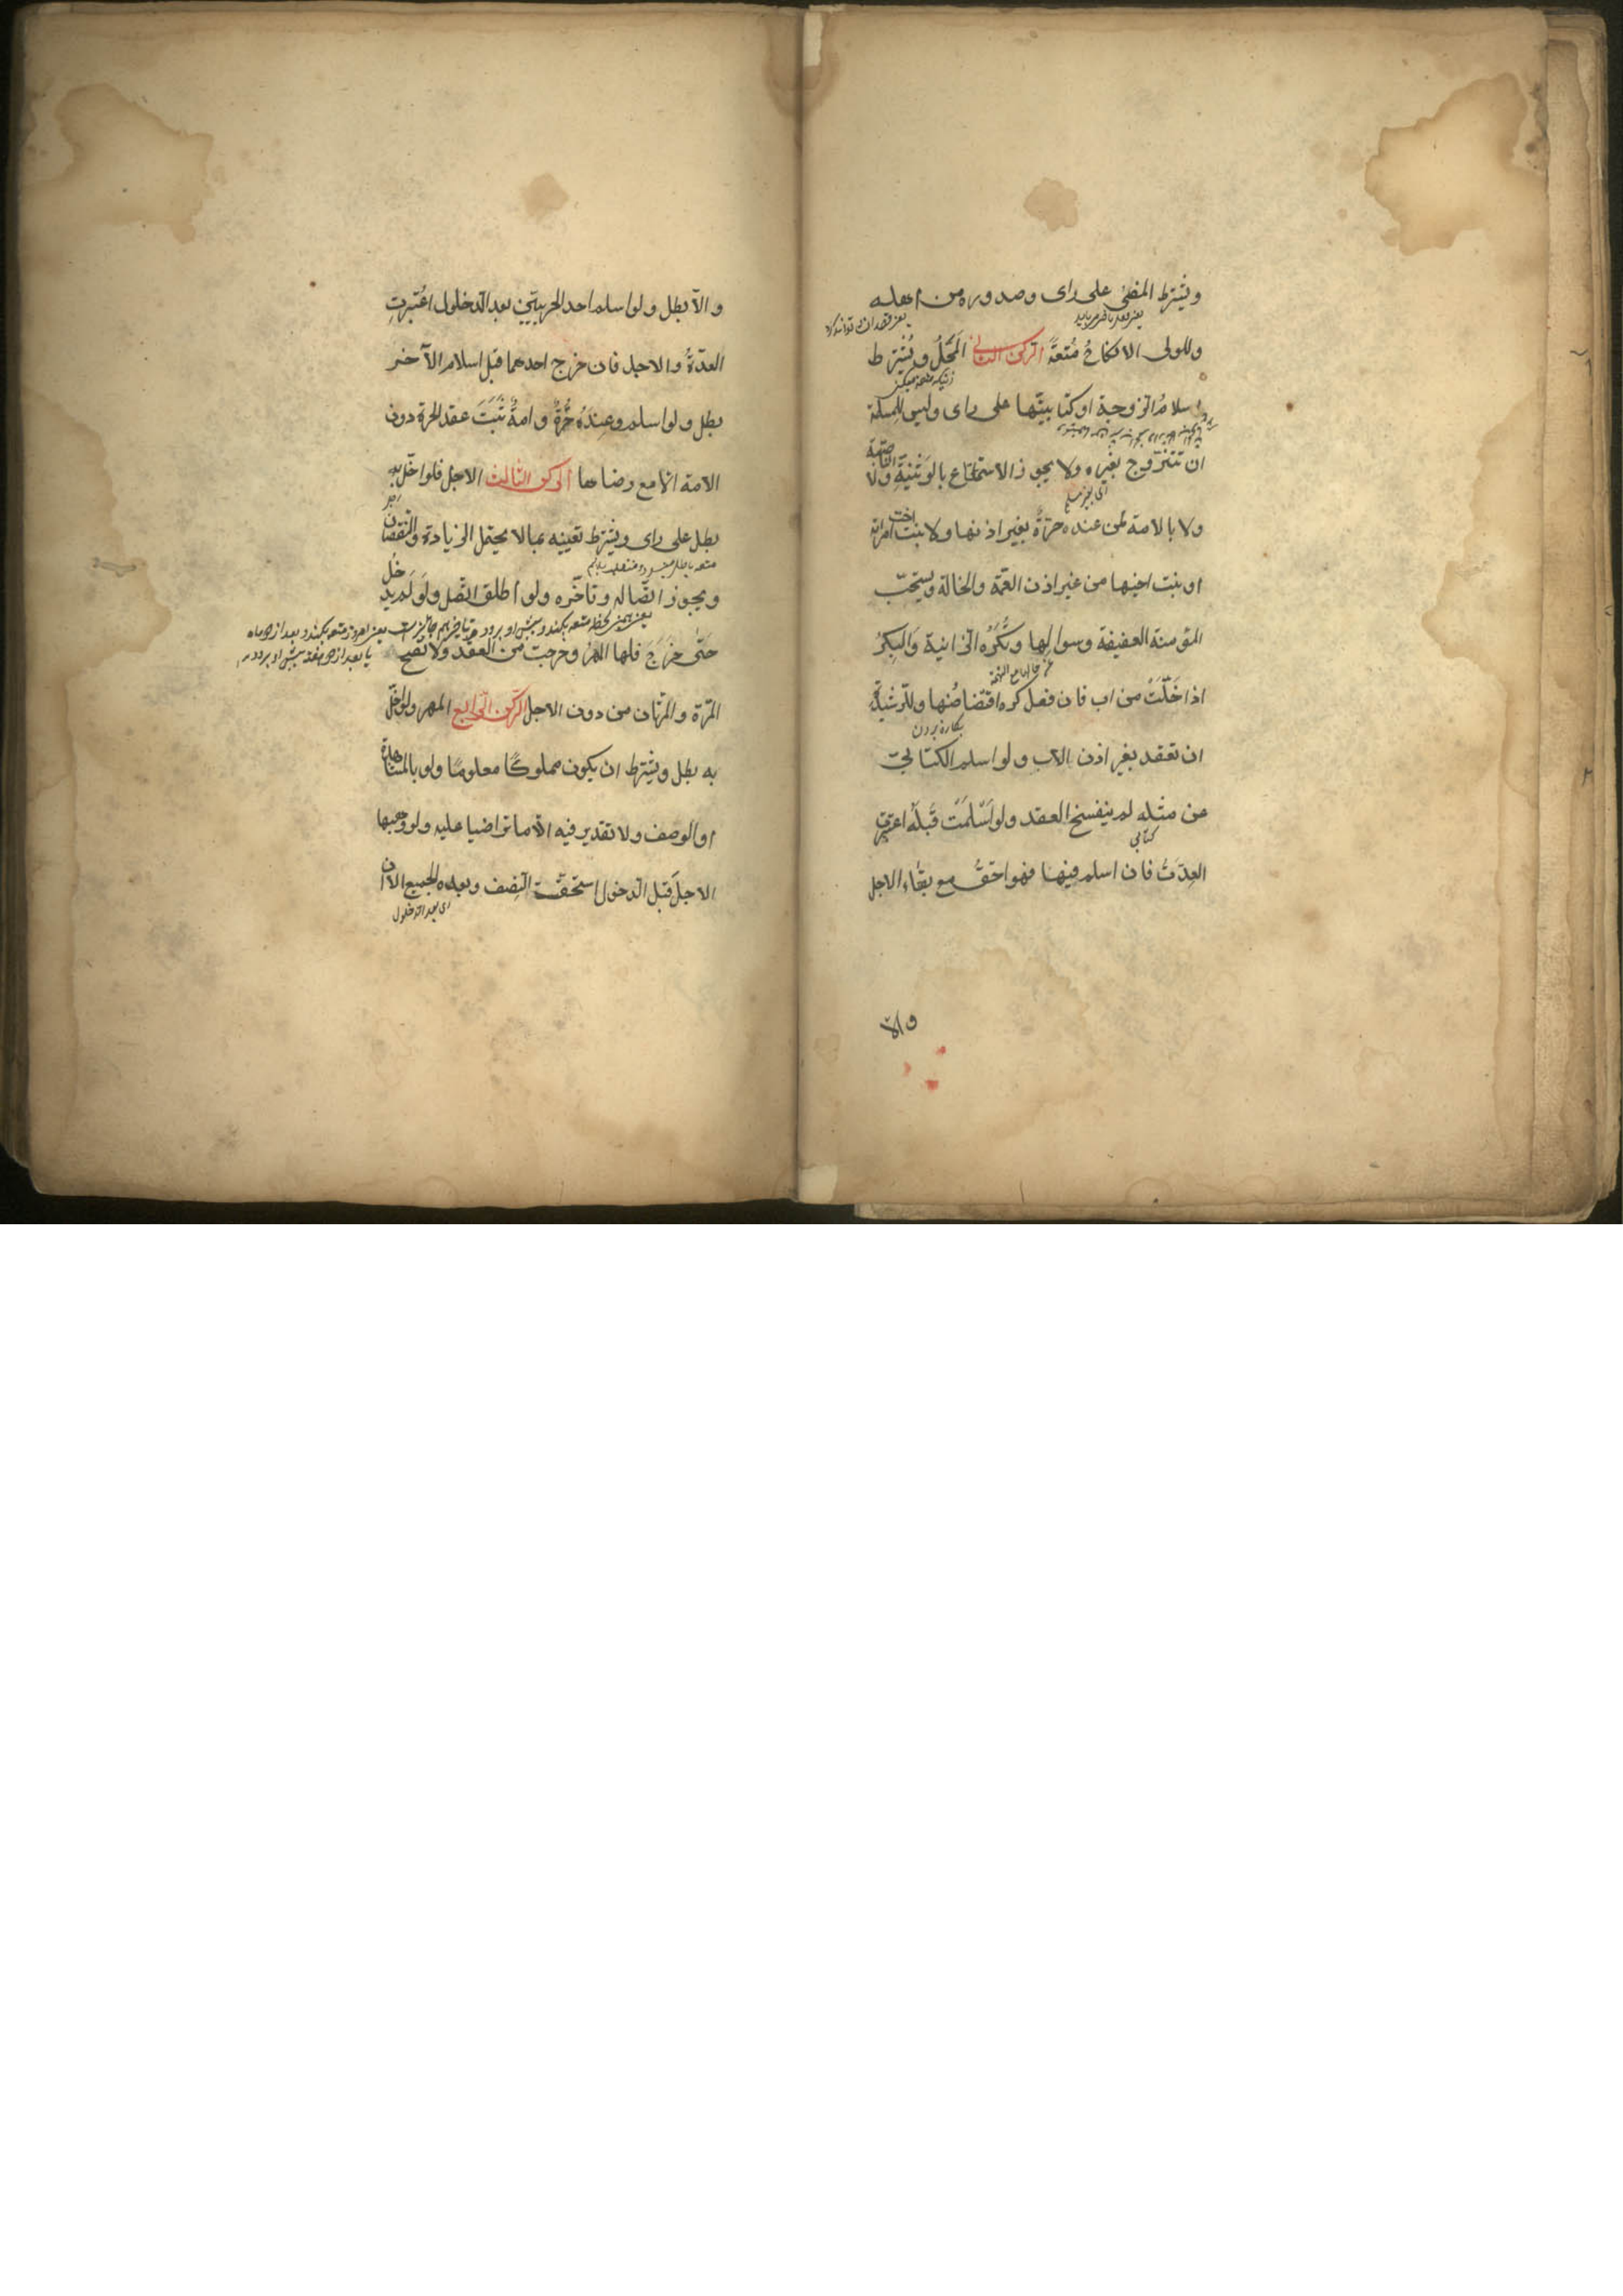 ويشترط المضىّ على راى وصدوره من اهله
وللولى الانكاح مُتعةً الركن الثانى المَحَلُّ ويُشْتَرط
اسلامُ الزوجة او كتابيتّها على راى وليس للمسلمة
ان تتزوج بغيره ولا يجوز الاستمتاع بالوَثنيّةِ ولا الناصبيّة
اى بغير مسلم
ولا بالامة لمن عنده حرّةٌ بغير اذنها ولا بنت اخت امراته
او بنت اخيها من غير اذن العمّة والخالة ويستحبّ
المؤمنة العفيفة وسوالها ويُكَرهُ الزانية وَالبِكرُ
اذا خَلَتْ من اب فان فعل كره اقتضاضُها وللرشيدة
بكارة بردن
ان تعقد بغير اذن الاب ولو اسلم الكتابىّ
عن مثله لم ينفسخ العقد ولو اَسْلَمَتْ قَبْلَهُ اعتبرت
كتابى
العِدّةُ فان اسلم فيها فهو احقُّ مع بقاء الاجل
والاّ
والاّ بطل ولو اسلم احد الحربيّين بعد الدخول اعُتبرتِ
العدّةُ والاجل فان خرج احدهما قبل اسلام الآخر
بطل ولو اسلم وعِندهُ حُرّةٌ وامةٌ ثَبَتَ عقد الحرة دون
الامة الاّ مع رضاها الركن الثالث الاجل فلو اخلّ به
بطل على راى ويشترط تعيينه بمالا يحتمل الزيادة والنقصان
ويجوز اتّصاله وتاخّره ولو اطلق اتّصل ولَو لَم يدخُل
حَتّى خرَجَ فلها المهرُ وخرجت من العقد ولا تصح
المرّة والمرّتان من دون الاجل الركن الرابع المهر ولو اخلّ
به بطل ويشترط ان يكون مملوكًا معلومًا ولو بالمشاهدة
او الوصف ولا تقدير فيه الاّ ما تراضيا عليه ولو وهبها
الاجلَ قبل الدخول استحقّت النِصف وبعده الجميع الاّ ان
اى بعد الدخول